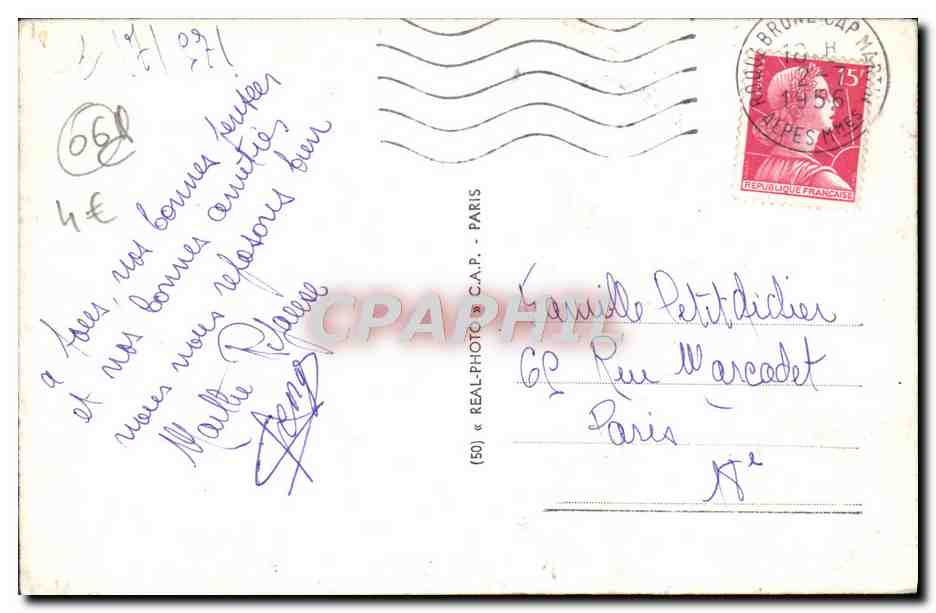 068
4€
à tous, nos bonnes pensées
et nos bonnes amitiés
nous nous reposons bien
Marthe
(50) « REAL-PHOTO » C.A.P. - PARIS
CPAPHIL
ROQUEBRUNE-CAP MARTIN
18 H
2-
1956
ALPES MMES
15F
REPUBLIQUE FRANÇAISE
Famille Petitdidier
69 Rue Marcadet
Paris